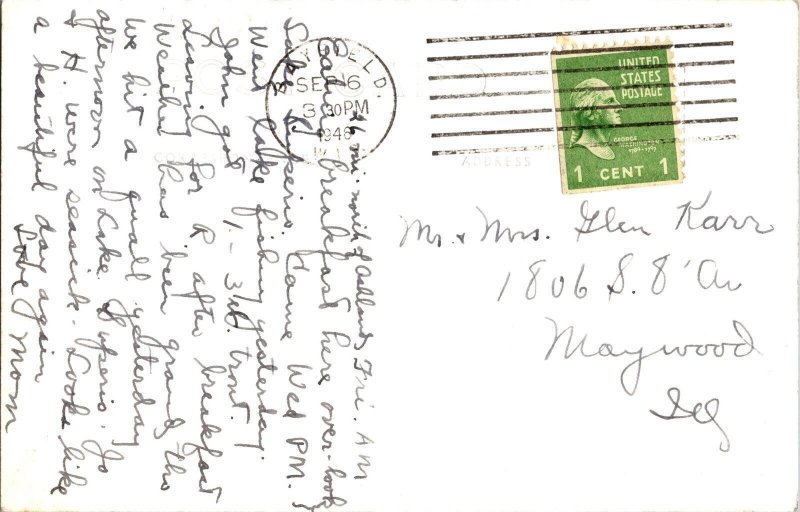 26 mi. north of Ashland, Fri. A M
Eating breakfast here over-look
Lake Superio. Came Wed PM. &
Went Lake fishing yesterday.
John got 1 - 3 lb. trout.
Leaving for R after breakfast
Weather has been grand, tho
we hit a squall yesterday
afternoon on Lake Superio. Jo
& H. were seasick. Looks like
a beautiful day again
Love Mom
FIELD,
SEP 16
3 30 PM
1948
WIS.
UNITED
STATES
POSTAGE
GEORGE
WASHINGTON
1789-1797
1 CENT 1
ADDRESS
Mr. & Mrs. Glen Karr
1806 S. 8' Av
Maywood
Ill